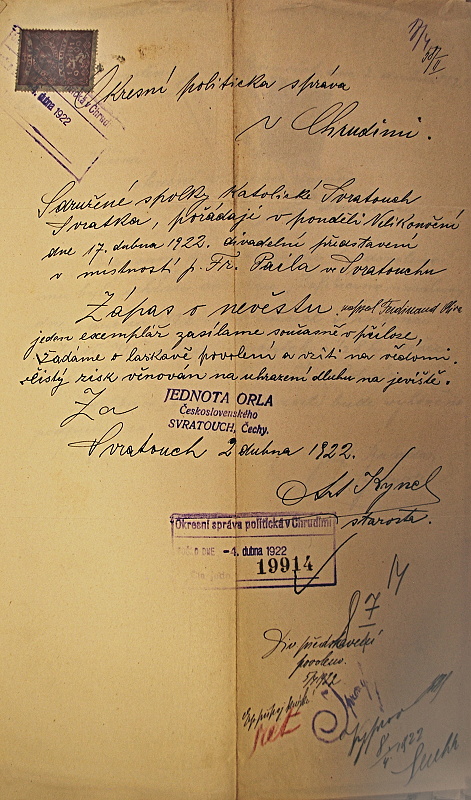 dubna 1922
Okresní politická správa
v Chrudimi.
Sdružené spolky katolické Svratouch
Svratka, pořádají v pondělí Velikonoční
dne 17. dubna 1922. divadelní představení
v místnosti p. Fr. Paila ve Svratouchu
Zápas o nevěstu napsal Ferdinand
jeden exemplář zasíláme současně v příloze,
Žádáme o laskavé povolení a vzíti na vědomí.
čistý zisk věnován na uhrazení dluhu na jeviště.
Za
JEDNOTA ORLA
Československého
SVRATOUCH, Čechy.
Svratouch 2 dubna 1922.
Ant Kyncl
starosta.
Okresní správa politická v Chrudimi
DNE -4. dubna 1922
19914
Div představení
povoleno.